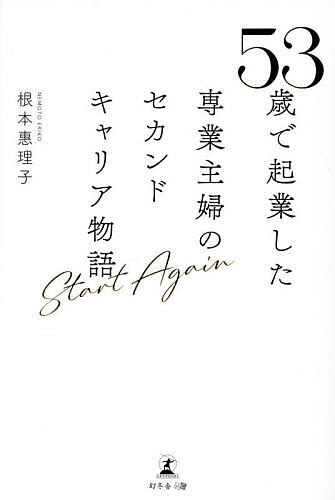 53
歳で起業した
専業主婦の
セカンド
キャリア物語
Start Again
NEMOTO ERIKO
根本惠理子
GENTOSHA
幻冬舎